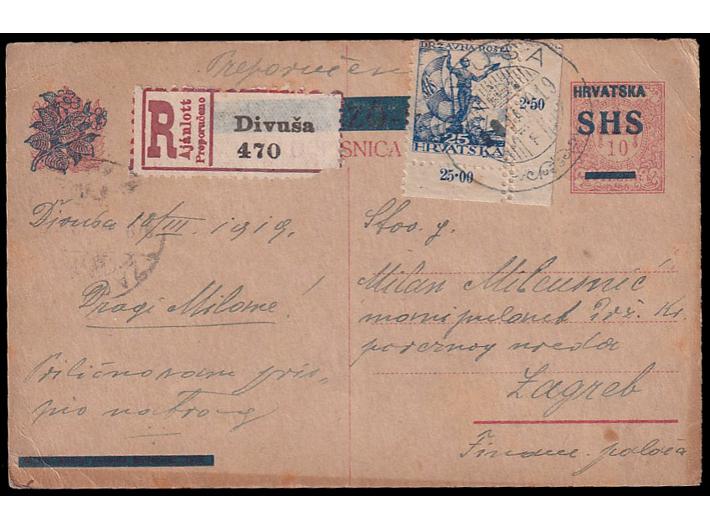 Preporučeno
R
Ajánlott
Preporučeno
Divuša
470
SNICA
DRŽAVNA POŠTA
25
HRVATSKA
25·00
2·50
HRVATSKA
SHS
10
Divuša 10/III. 1919.
Dragi Milane!
Prilično vam
Štov. g.
Milan Milcusnić
Kr.
poreznog ureda
Zagreb
Financ. palača